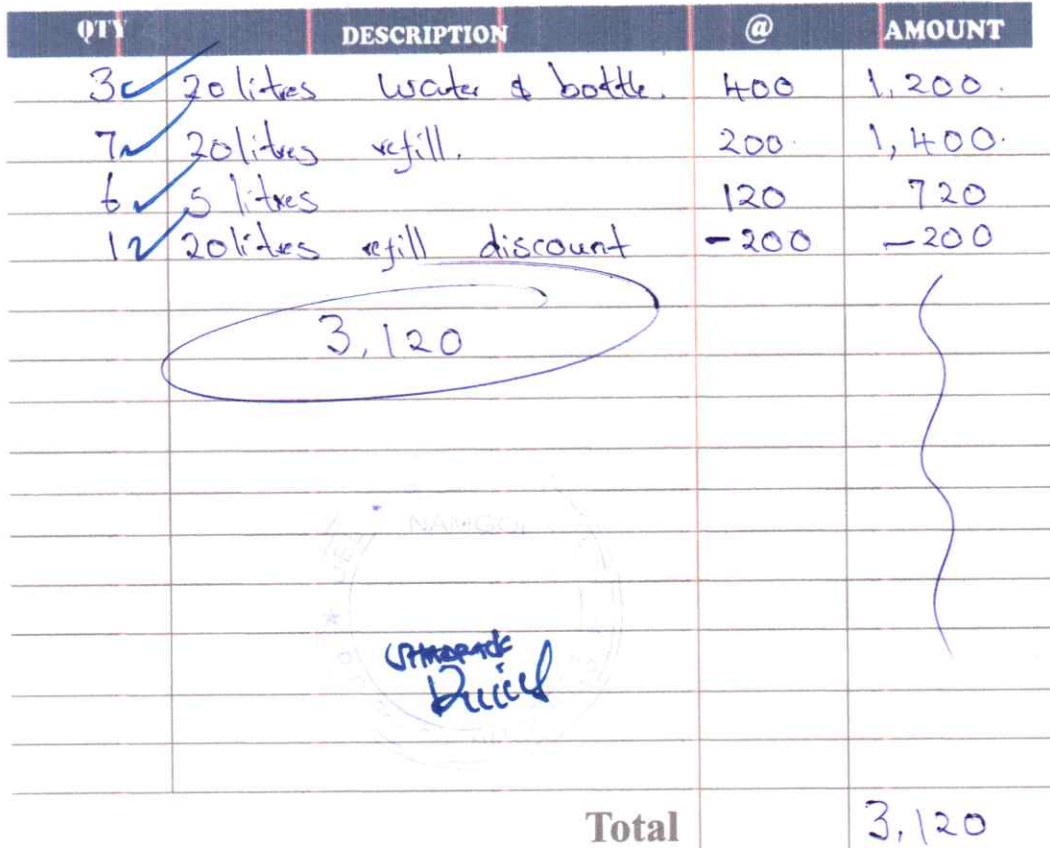 QTY DESCRIPTION @ AMOUNT
3 20 litres water & bottle. 400 1,200.
7 20 litres refill. 200. 1,400.
6 5 litres 120 720
1 20 litres refill discount -200 -200
3,120
NAMGOI
Total 3,120